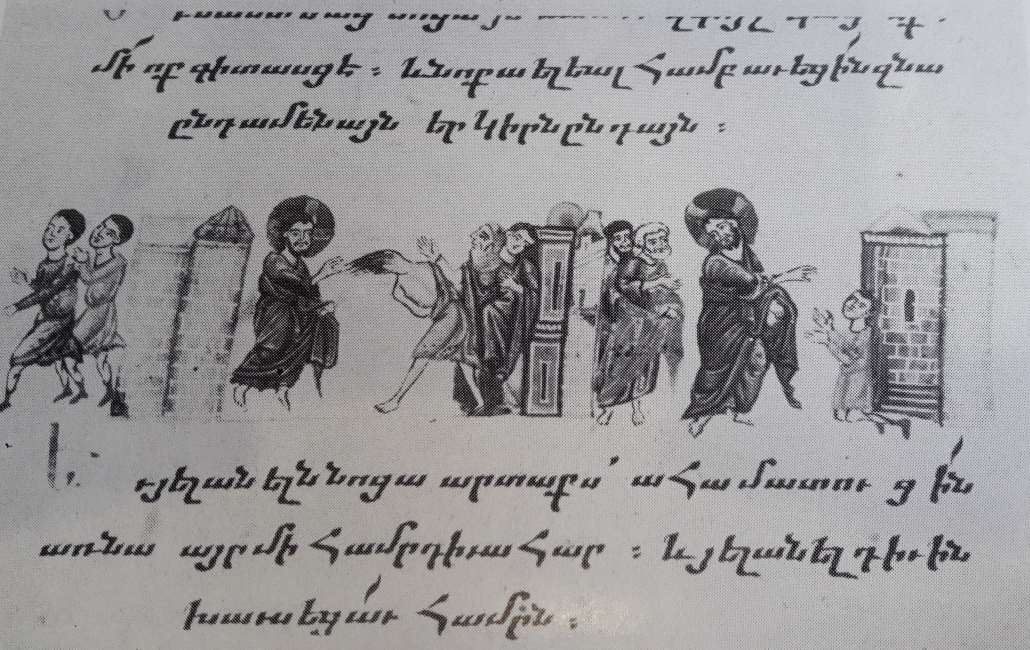 մի՛ ոք գիտասցէ ։ և նոքա ելեալ համբաւեցին զնա
ընդ ամենայն երկիրն ընդ այն ։
յելանելն նոցա արտաքս՝ ահա մատուցին
առ նա այր մի համր դիւահար ։ և յելանել դիւին
խաւսեցաւ համրն ։